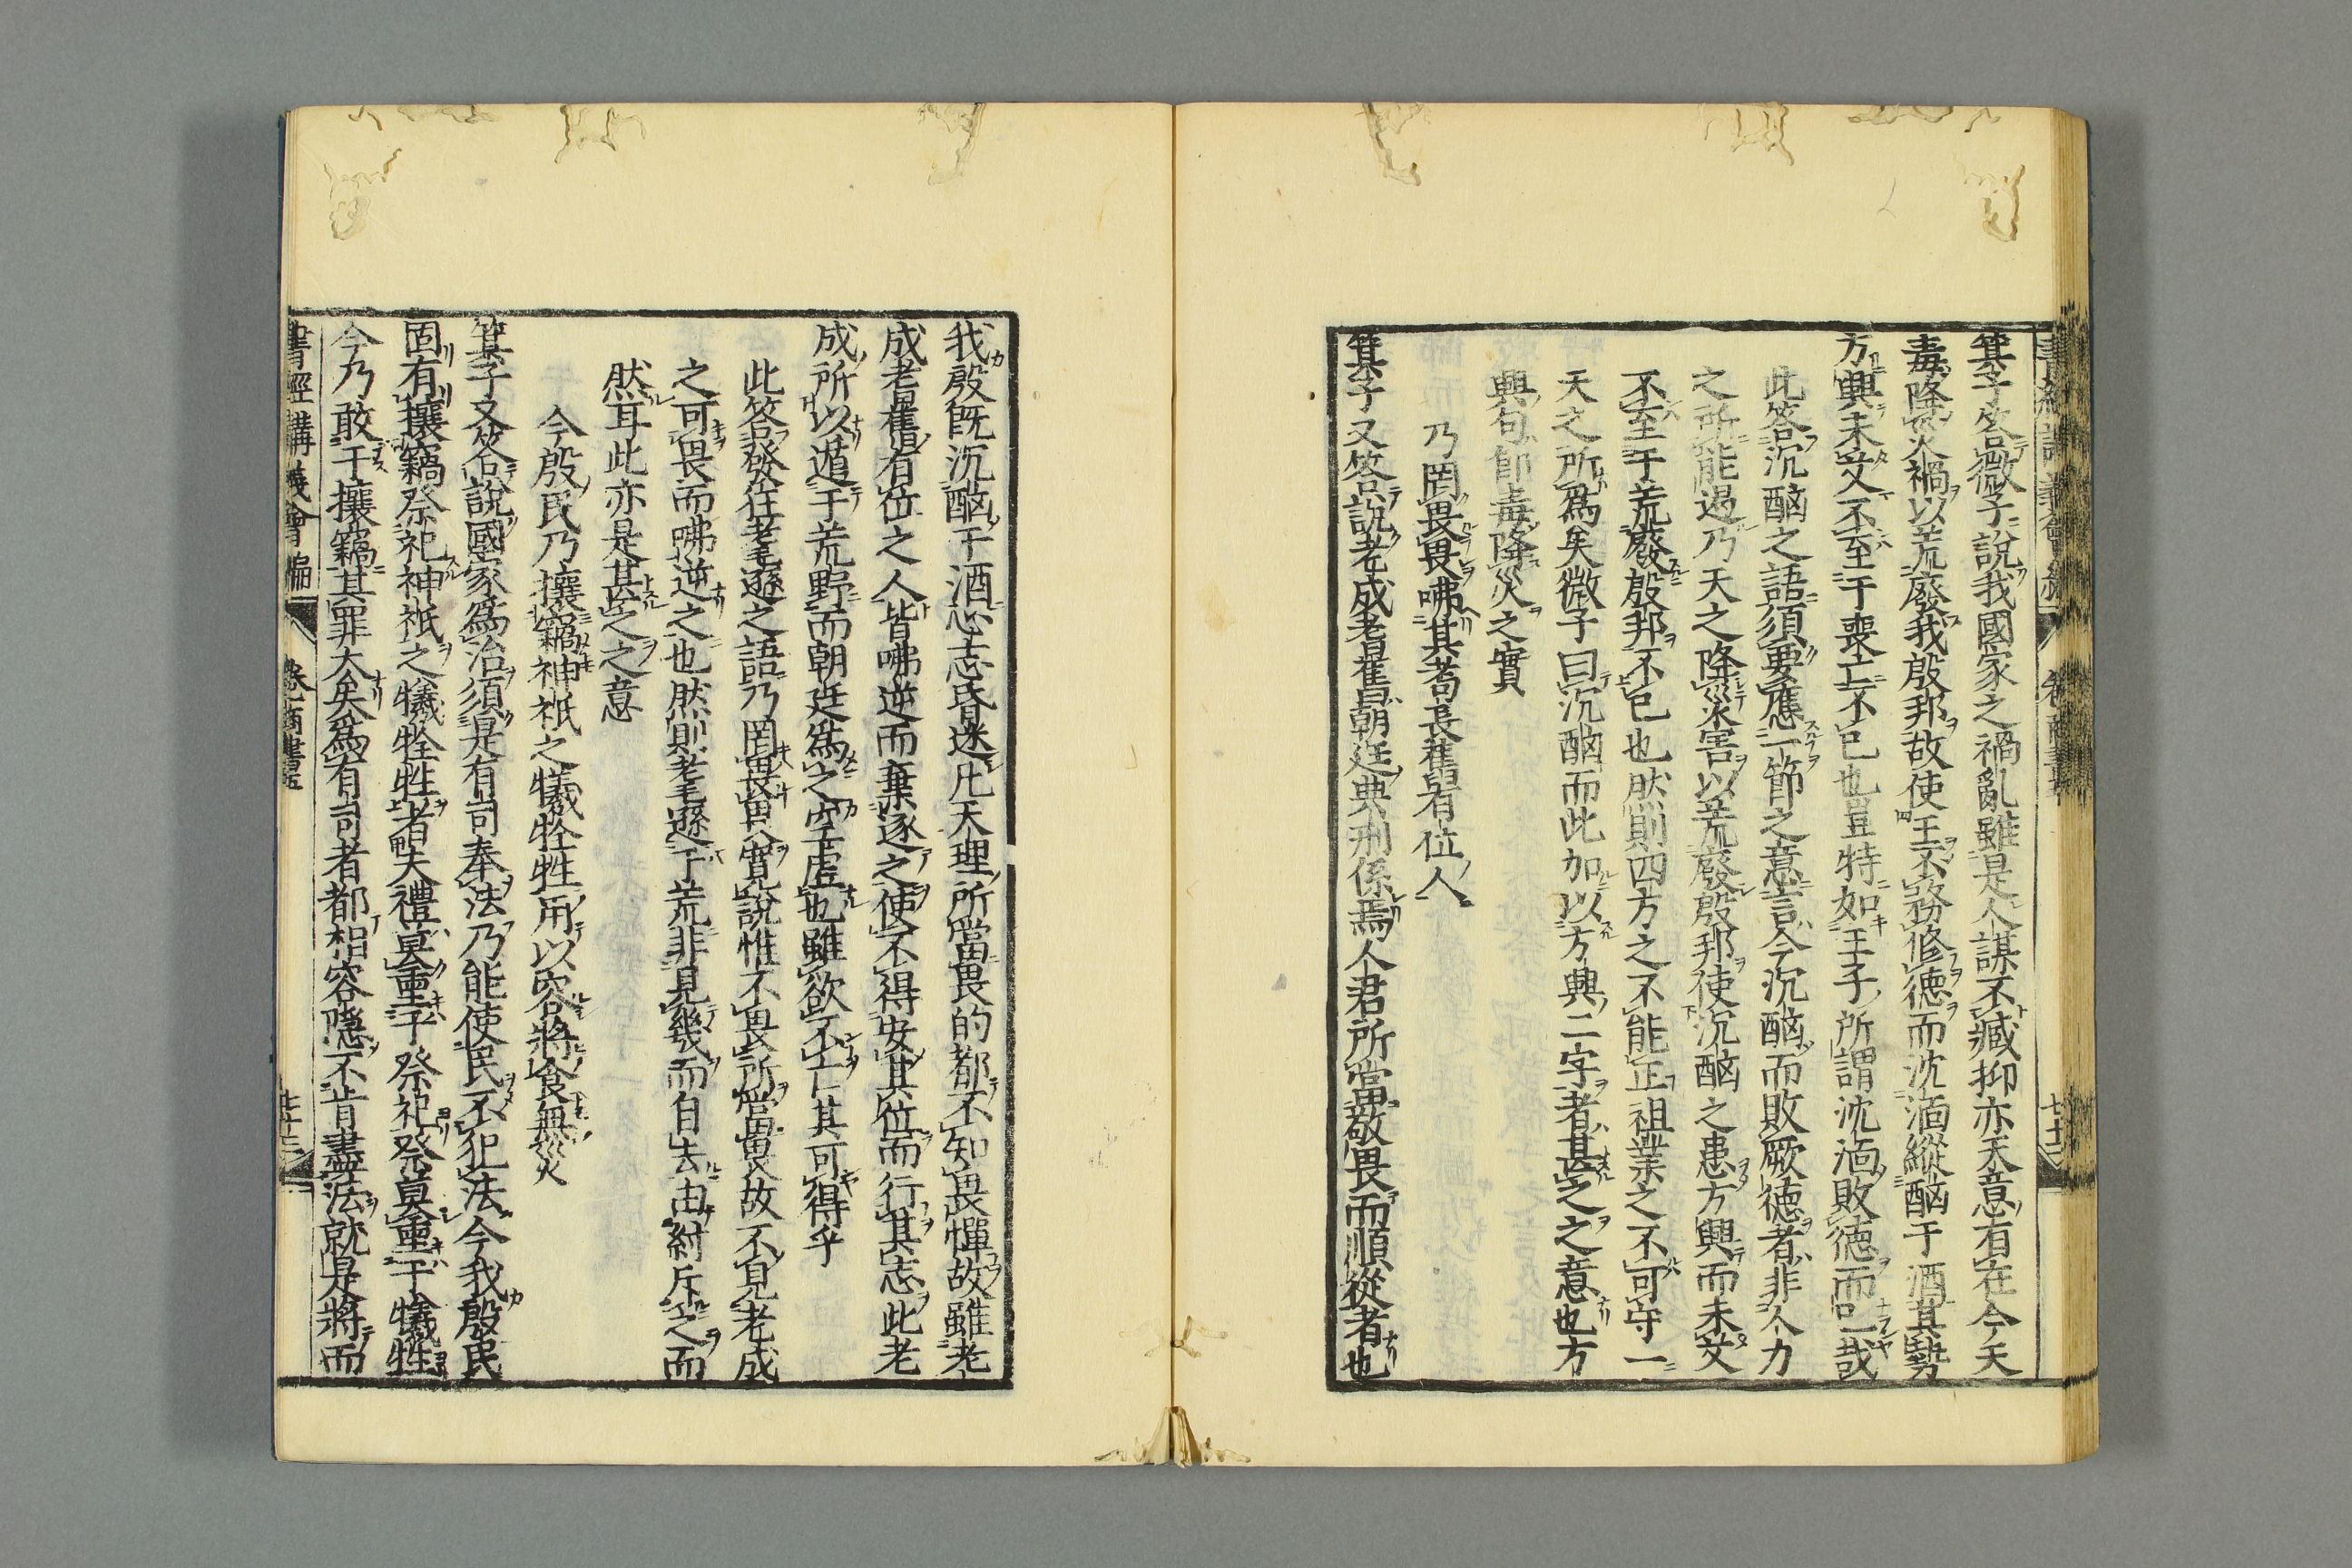 箕子答微子說我國家之禍亂雖是人謀不臧抑亦天意有在今天
毒降災禍以荒廢我殷邦故使王不務修德而沈湎縱酗于酒其勢
方興未艾不至于喪亡不已也豈特如王子所謂沈湎敗德而已哉
此答沉酗之語須要應一節之意言今沉酗而敗厥德者非人力
之所能遏乃天之降災害以荒廢殷邦使沉酗之患方興而未艾
不至于荒廢殷邦不已也然則四方之不能正祖業之不可守一
天之所爲矣微子曰沉酗而此加以方興二字者甚之之意也方
興句卽毒降災之實
乃罔畏畏咈其耇長舊有位人
箕子又答說老成耆舊朝廷典刑係焉人君所當敬畏而順從者也
我殷旣沉酗于酒心志昏迷凡天理所當畏的都不知畏憚故雖老
成耆舊有位之人皆咈逆而棄逐之使不得安其位而行其志此老
成所以遁于荒野而朝廷爲之空虛也雖欲不亡其可得乎
此答發在耄遜之語乃罔畏畏實說惟不畏所當畏故不見老成
之可畏而咈逆之也然則耄遜于荒非見幾而自去由紂斥之而
然耳此亦是甚之之意
今殷民乃攘竊神祇之犧牷牲用以容將食無災
箕子又答說國家爲治須是有司奉法乃能使民不犯法今我殷民
固有攘竊祭祀神祇之犧牷牲者夫禮莫重于祭祀祭莫重于犧牲
今乃敢于攘竊其罪大矣爲有司者都相容隱不肯盡法就是將而
書經講義會編
卷七商書五